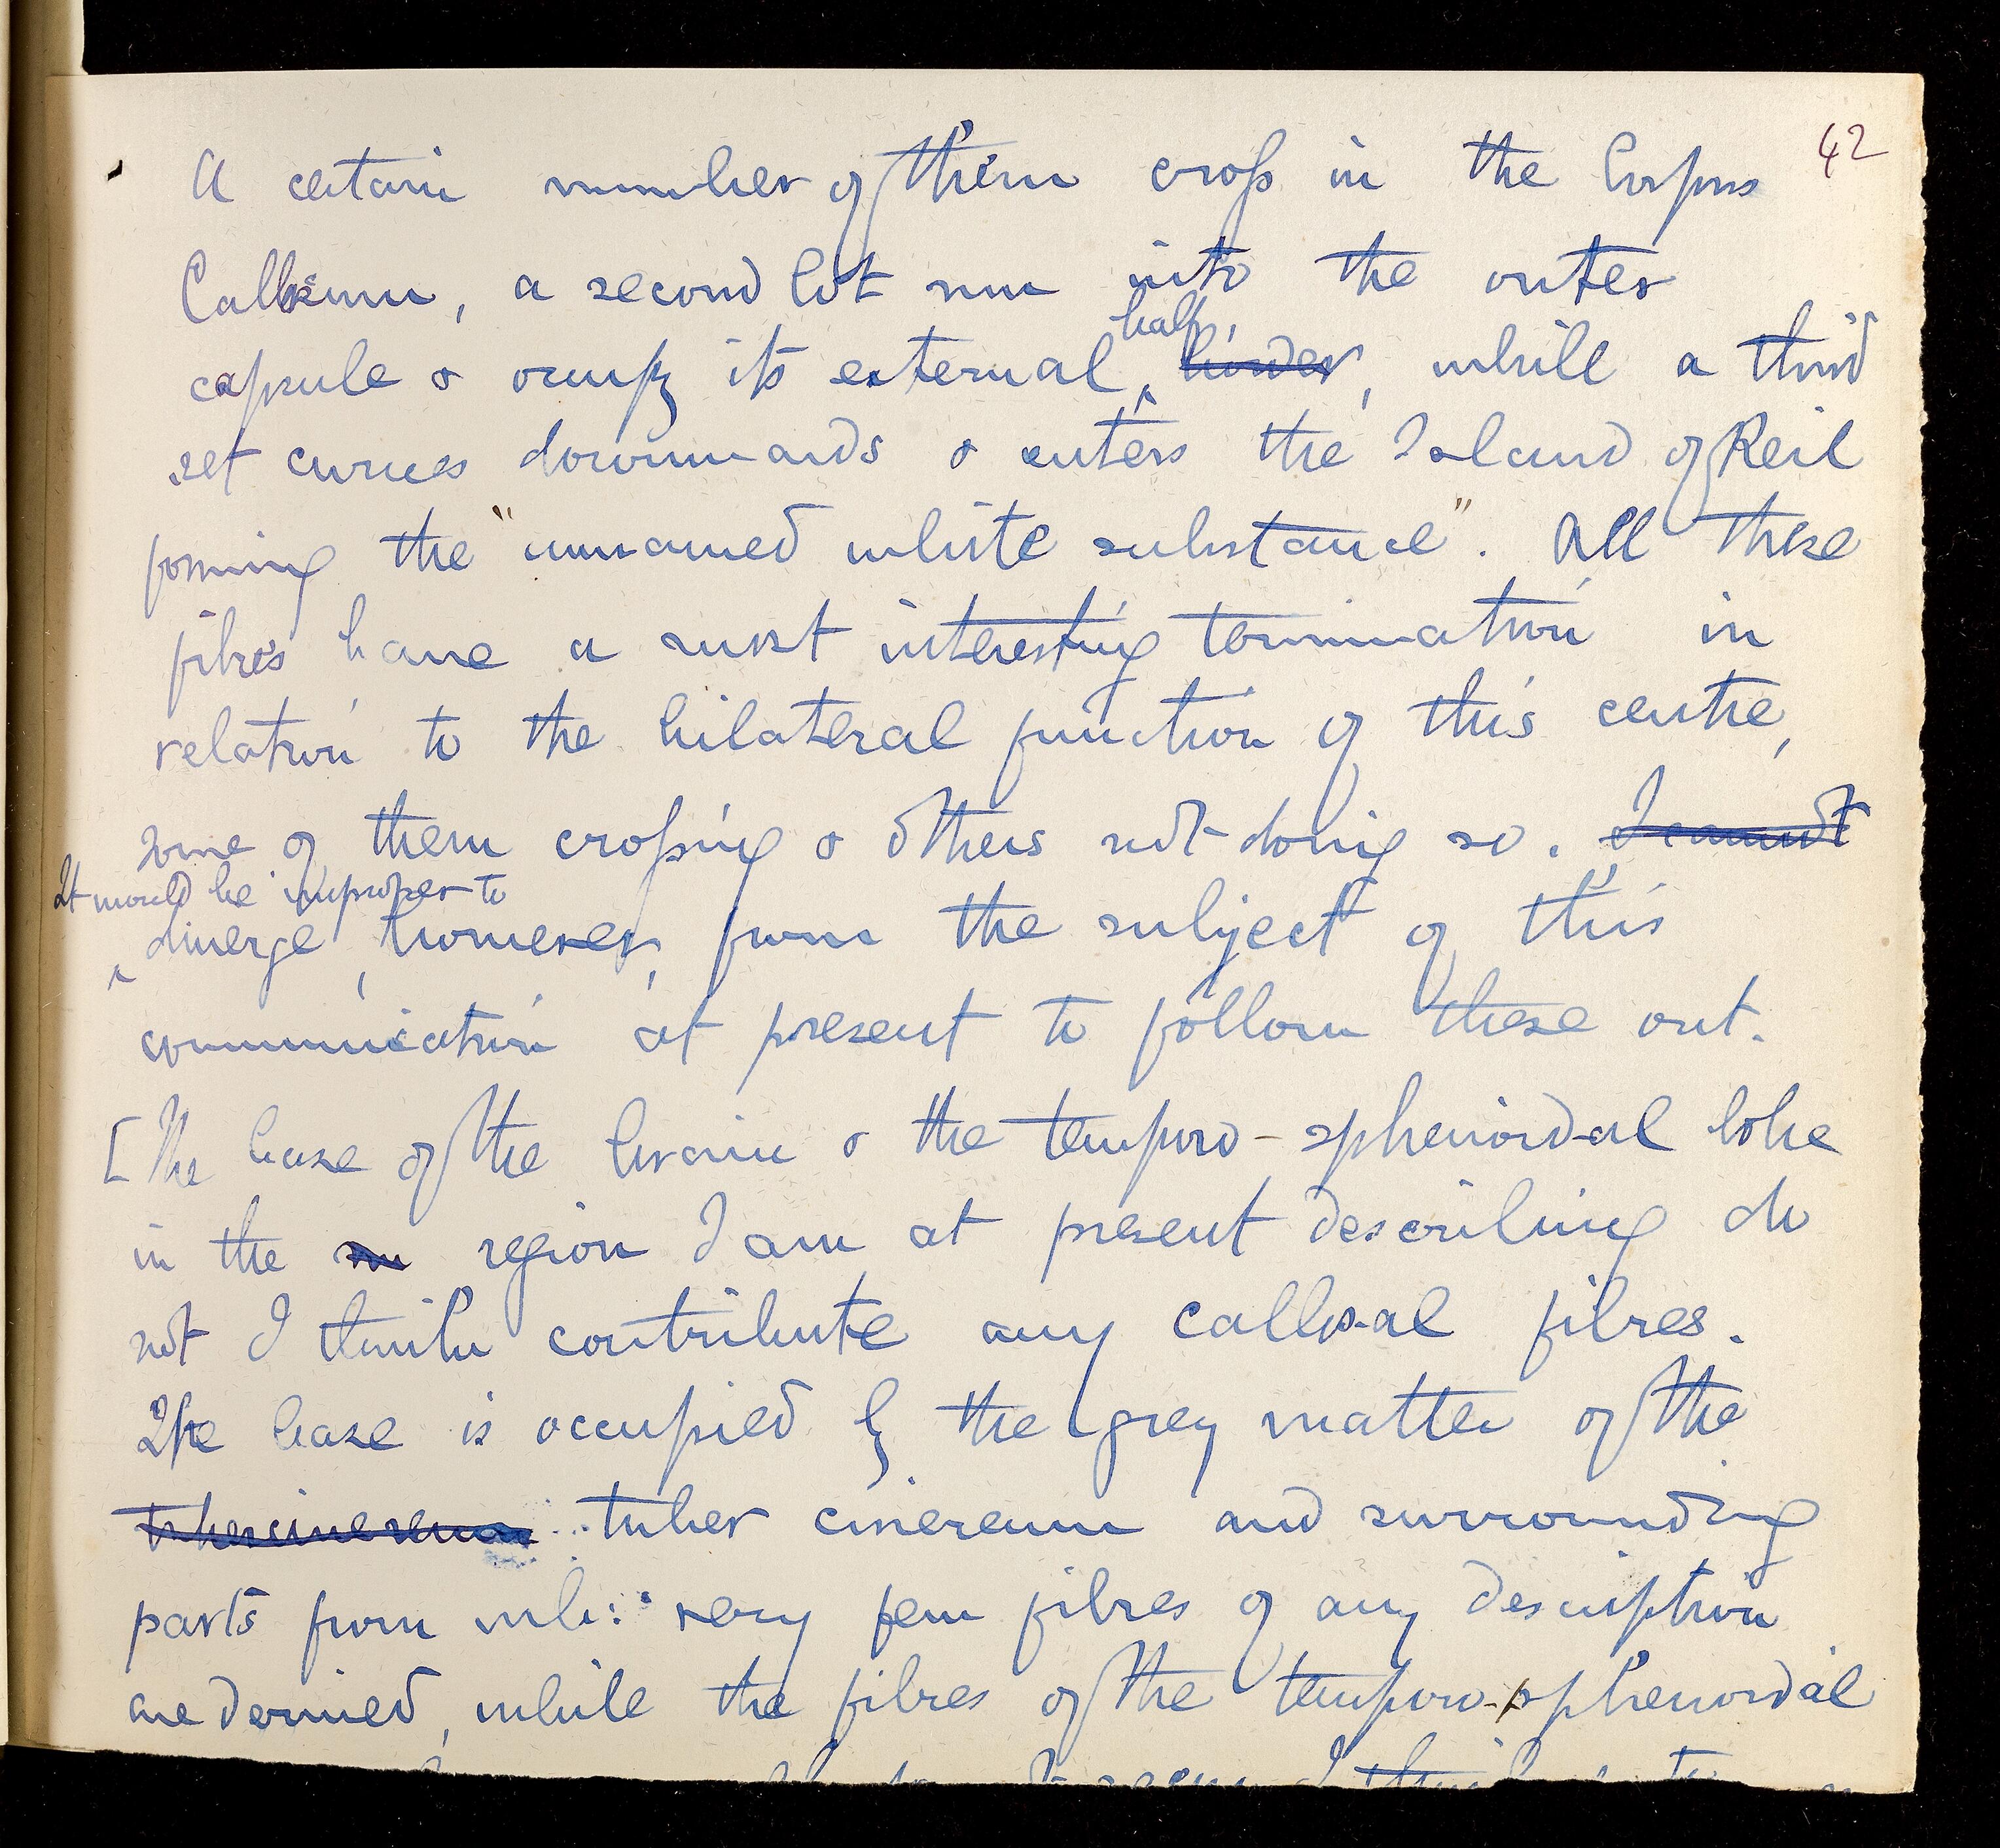 42
A certain number of them cross in the Corpus
Callosum, a second lot run into the outer
half,
capsule & occupy its external hinder, while a third
set curves downwards & enters the Island of Reil
forming the "unnamed white substance". All these
fibres have a most interesting termination in
relation to the bilateral function of this centre,
some of them crossing & others not doing so. I cannot
It would be improper to
diverge, however, from the subject of this
communication at present to follow these out.
[The base of the brain & the temporo-sphenoidal lobe
in the region I am at present describing do
not I think contribute any callosal fibres.
The base is occupied by the grey matter of the
tuber cinereum tuber cinereum and surrounding
parts from wh: very few fibres of any description
are derived, while the fibres of the temporo-sphenoidal